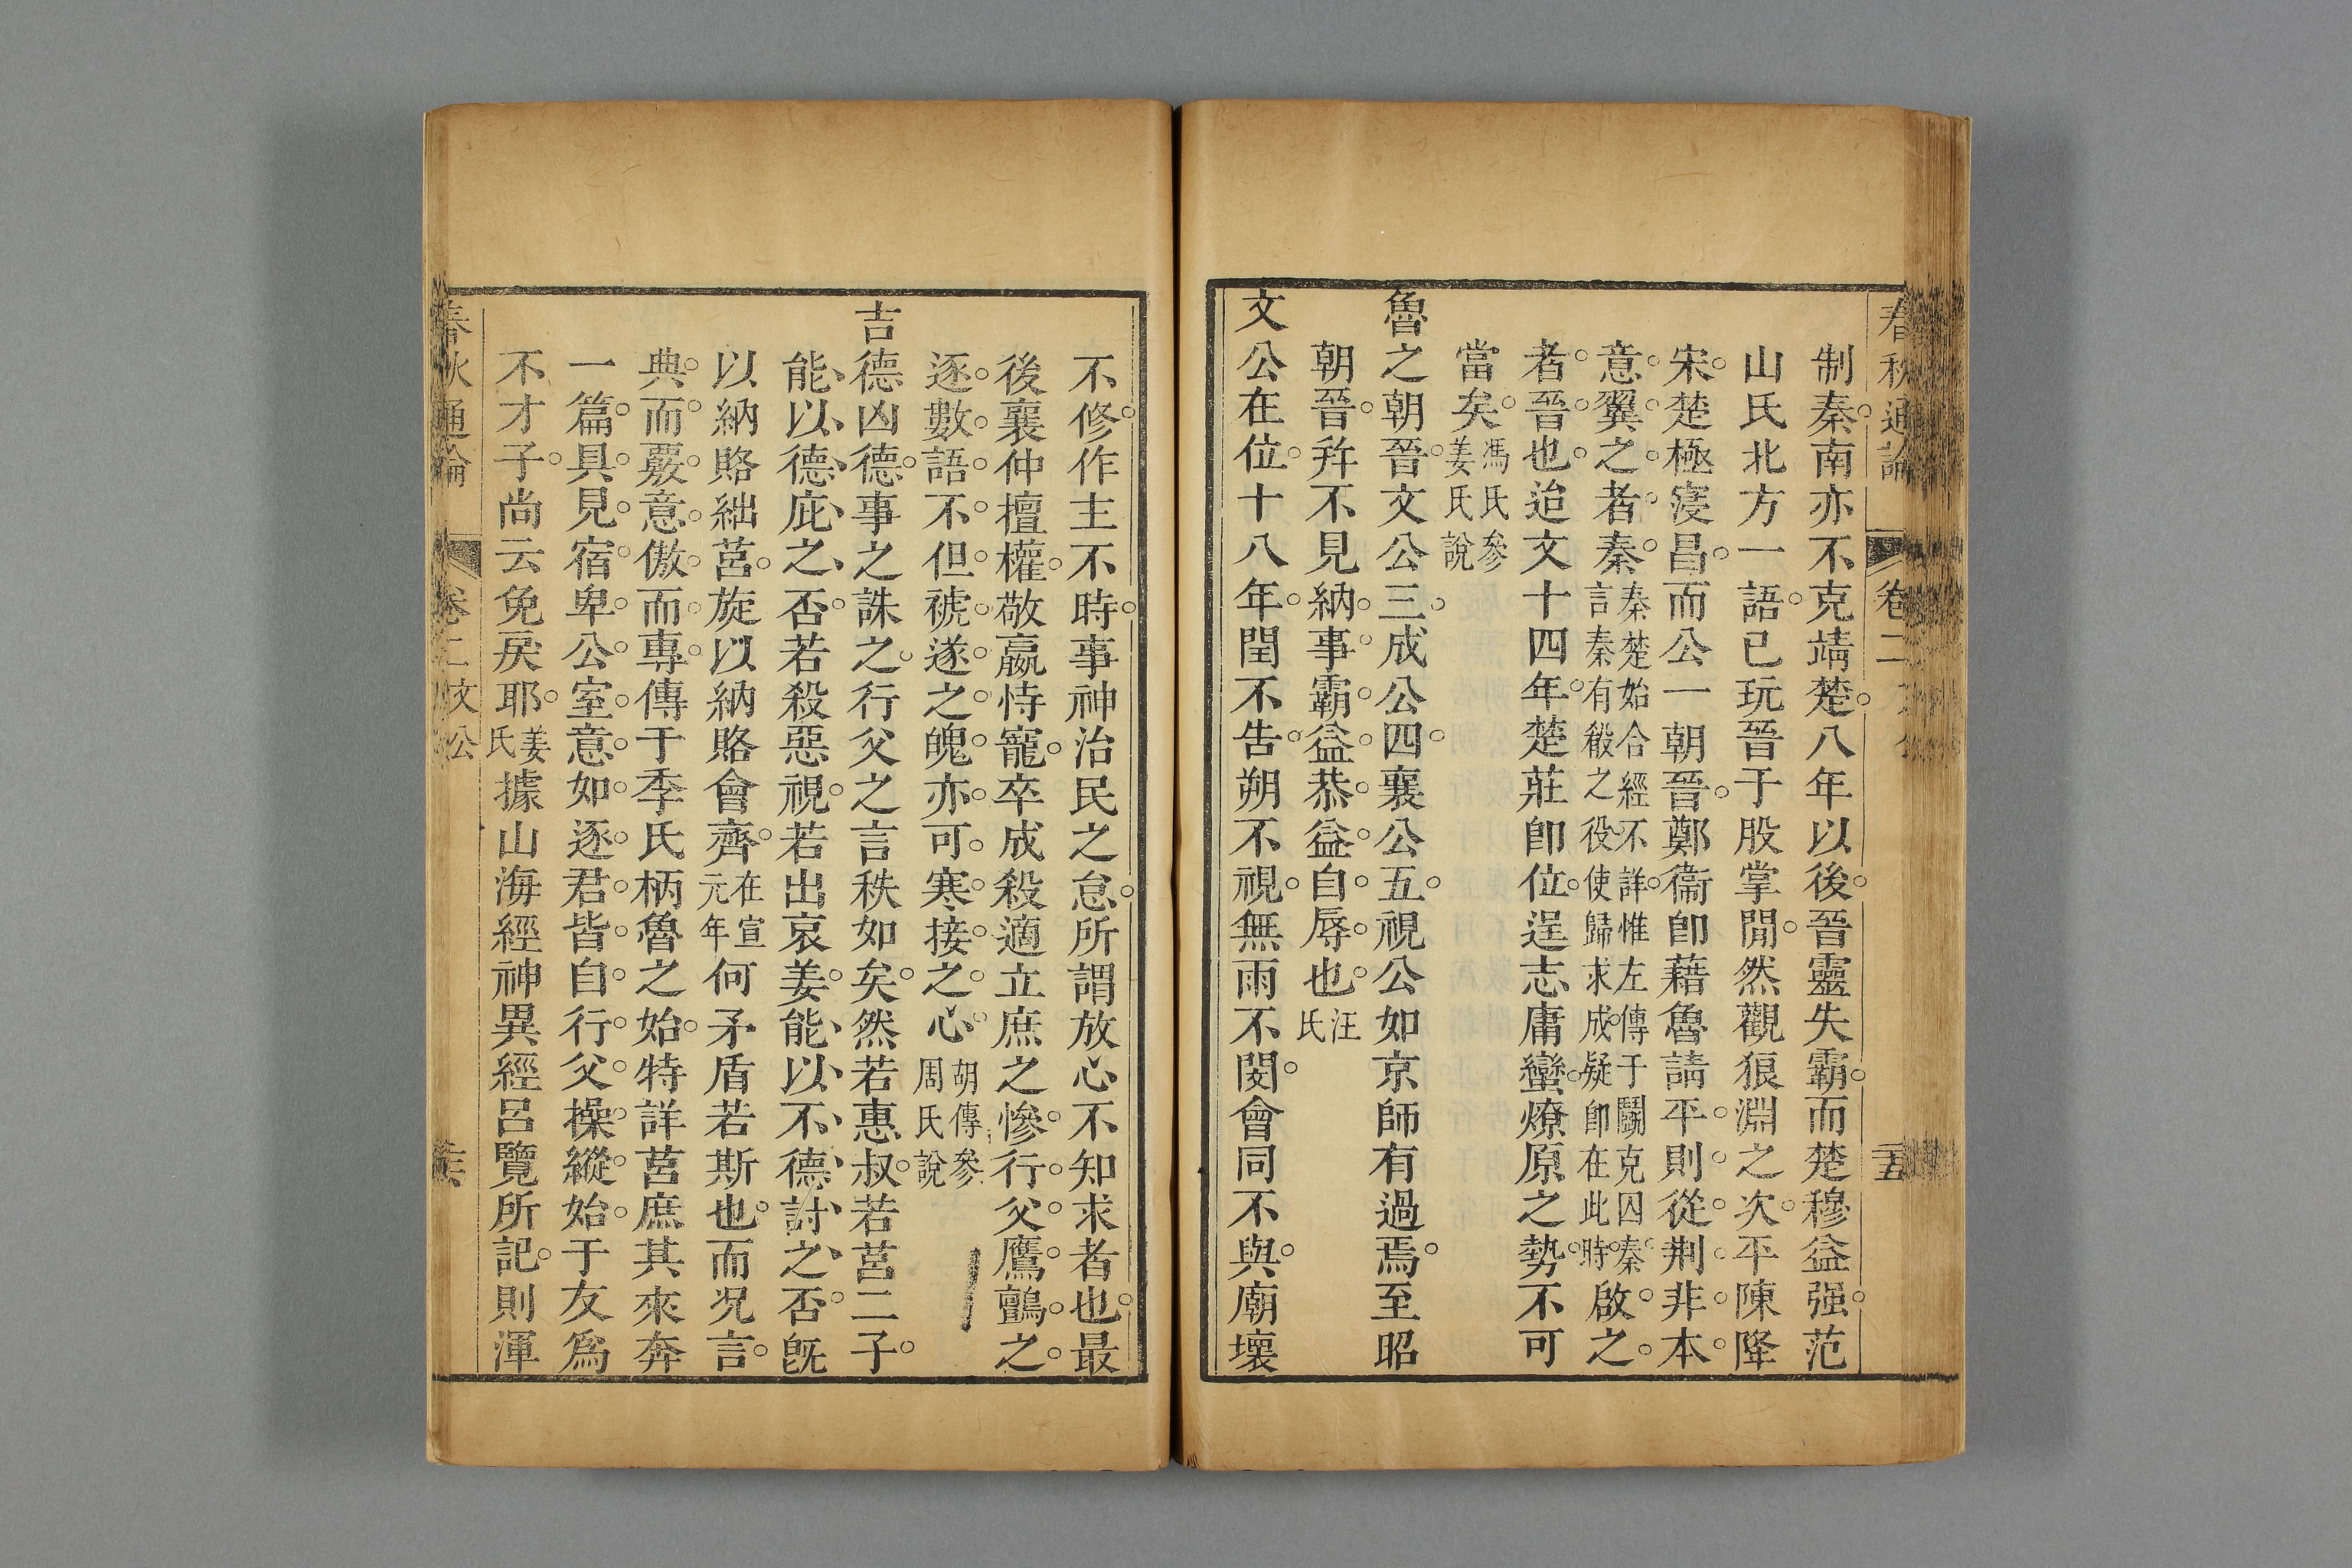 春秋通論 卷二
制秦南亦不克靖楚八年以後晉靈失霸而楚穆益强范
山氏北方一語已玩晉于股掌閒然觀狼淵之次平陳降
宋楚極寖昌而公一朝晉鄭衞卽藉魯請平則從荆非本
意翼之者秦秦楚始合經不詳惟左傳于鬬克囚秦言秦有殽之役使歸求成疑卽在此時啟之
者晉也迨文十四年楚莊卽位逞志庸蠻燎原之勢不可
當矣馮氏參姜氏說
魯之朝晉文公三成公四襄公五視公如京師有過焉至昭
朝晉竝不見納事霸益恭益自辱也汪氏
文公在位十八年閏不告朔不視無雨不閔會同不與廟壞
不修作主不時事神治民之怠所謂放心不知求者也最
後襄仲擅權敬嬴恃寵卒成殺適立庶之慘行父鷹鸇之
逐數語不但褫遂之魄亦可寒接之心胡傳參周氏說
吉德凶德事之誅之行父之言秩如矣然若惠叔若莒二子
能以德庇之否若殺惡視若出哀姜能以不德討之否旣
以納賂絀莒旋以納賂會齊在宣元年何矛盾若斯也而况言
典而覈意傲而專傳于季氏柄魯之始特詳莒庶其來奔
一篇具見宿卑公室意如逐君皆自行父操縱始于友爲
不才子尚云免戾耶姜氏據山海經神異經呂覽所記則渾
春秋通論 卷二 文公